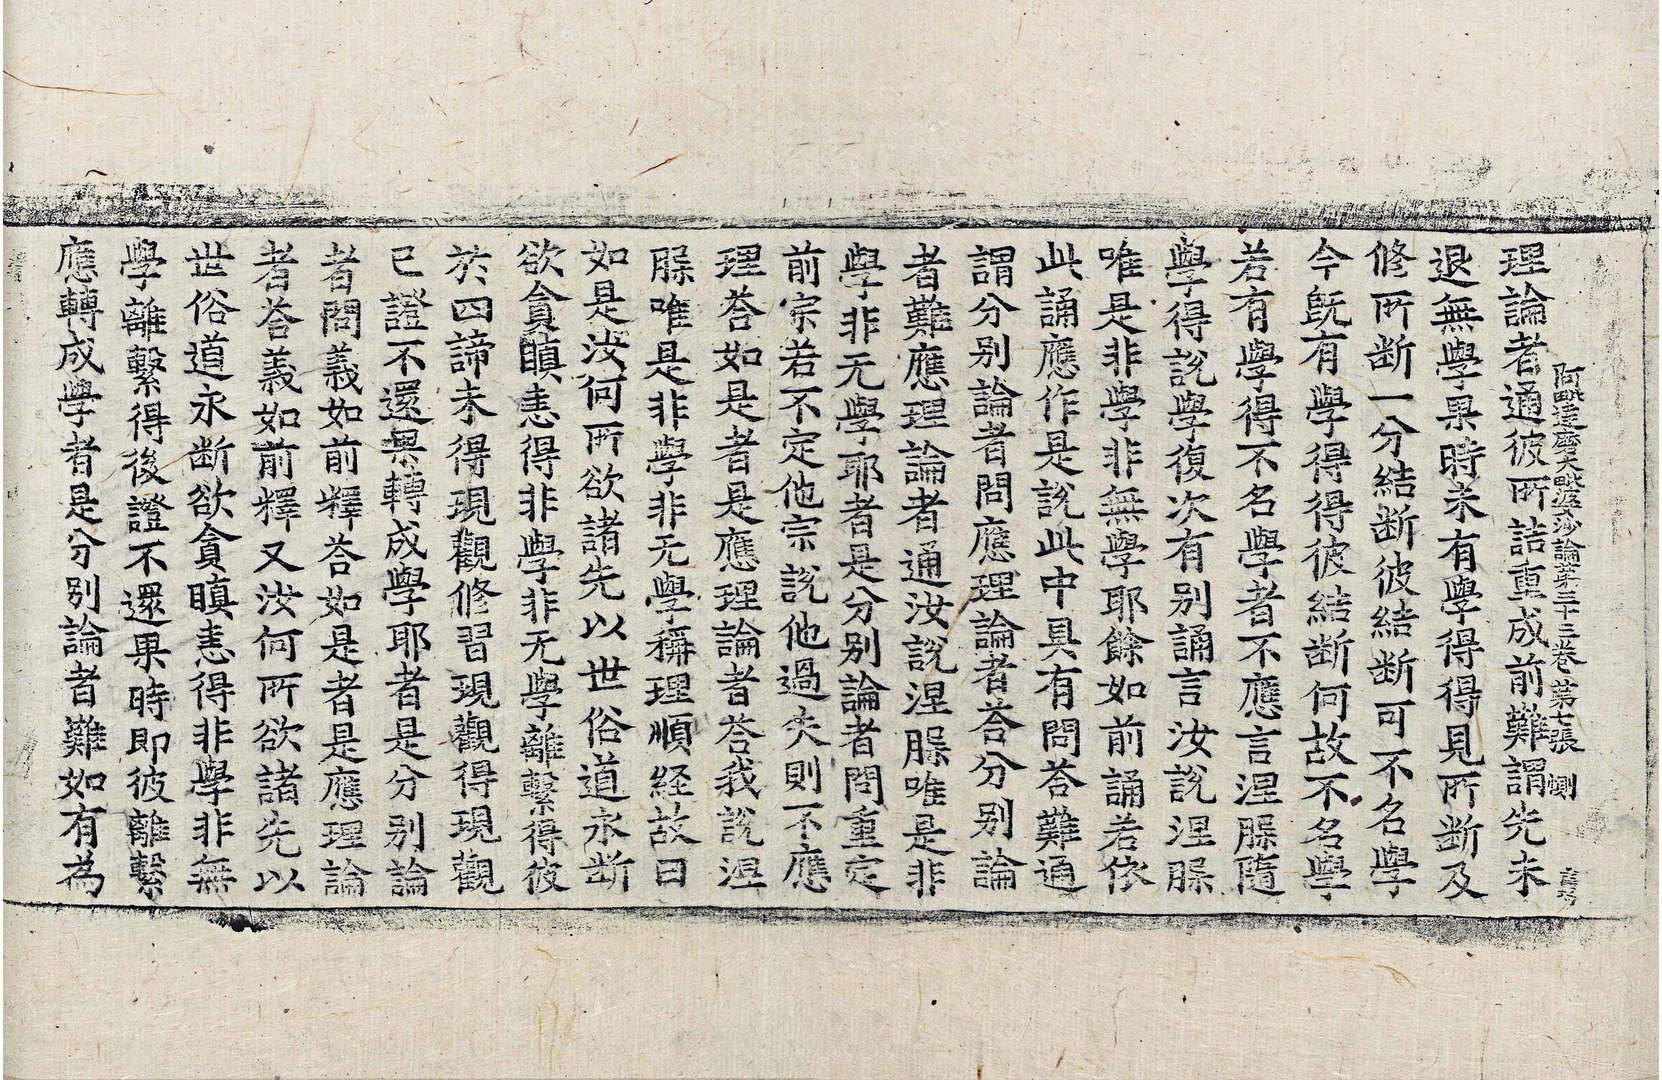 阿毗達磨大毗婆沙論第三十三卷 第七張 惻
理論者通彼所詰重成前難謂先未
退無學果時未有學得得見所断及
修所断一分結断彼結断可不名學
今旣有學得得彼結断何故不名學
若有學得不名學者不應言涅槃隨
學得說學復次有别誦言汝說涅槃
唯是非學非無學耶餘如前誦若依
此誦應作是說此中具有問荅難通
謂分别論者問應理論者荅分别論
者難應理論者通汝說涅槃唯是非
學非无學耶者是分别論者問重定
前宗若不定他宗說他過失則不應
理荅如是者是應理論者荅我說涅
槃唯是非學非无學稱理順経故曰
如是汝何所欲諸先以世俗道永断
欲貪瞋恚得非學非无學離繫得彼
於四諦未得現觀修習現觀得現觀
已證不還果轉成學耶者是分别論
者問義如前釋荅如是者是應理論
者荅義如前釋又汝何所欲諸先以
世俗道永断欲貪瞋恚得非學非無
學離繫得後證不還果時即彼離繫
應轉成學者是分别論者難如有為